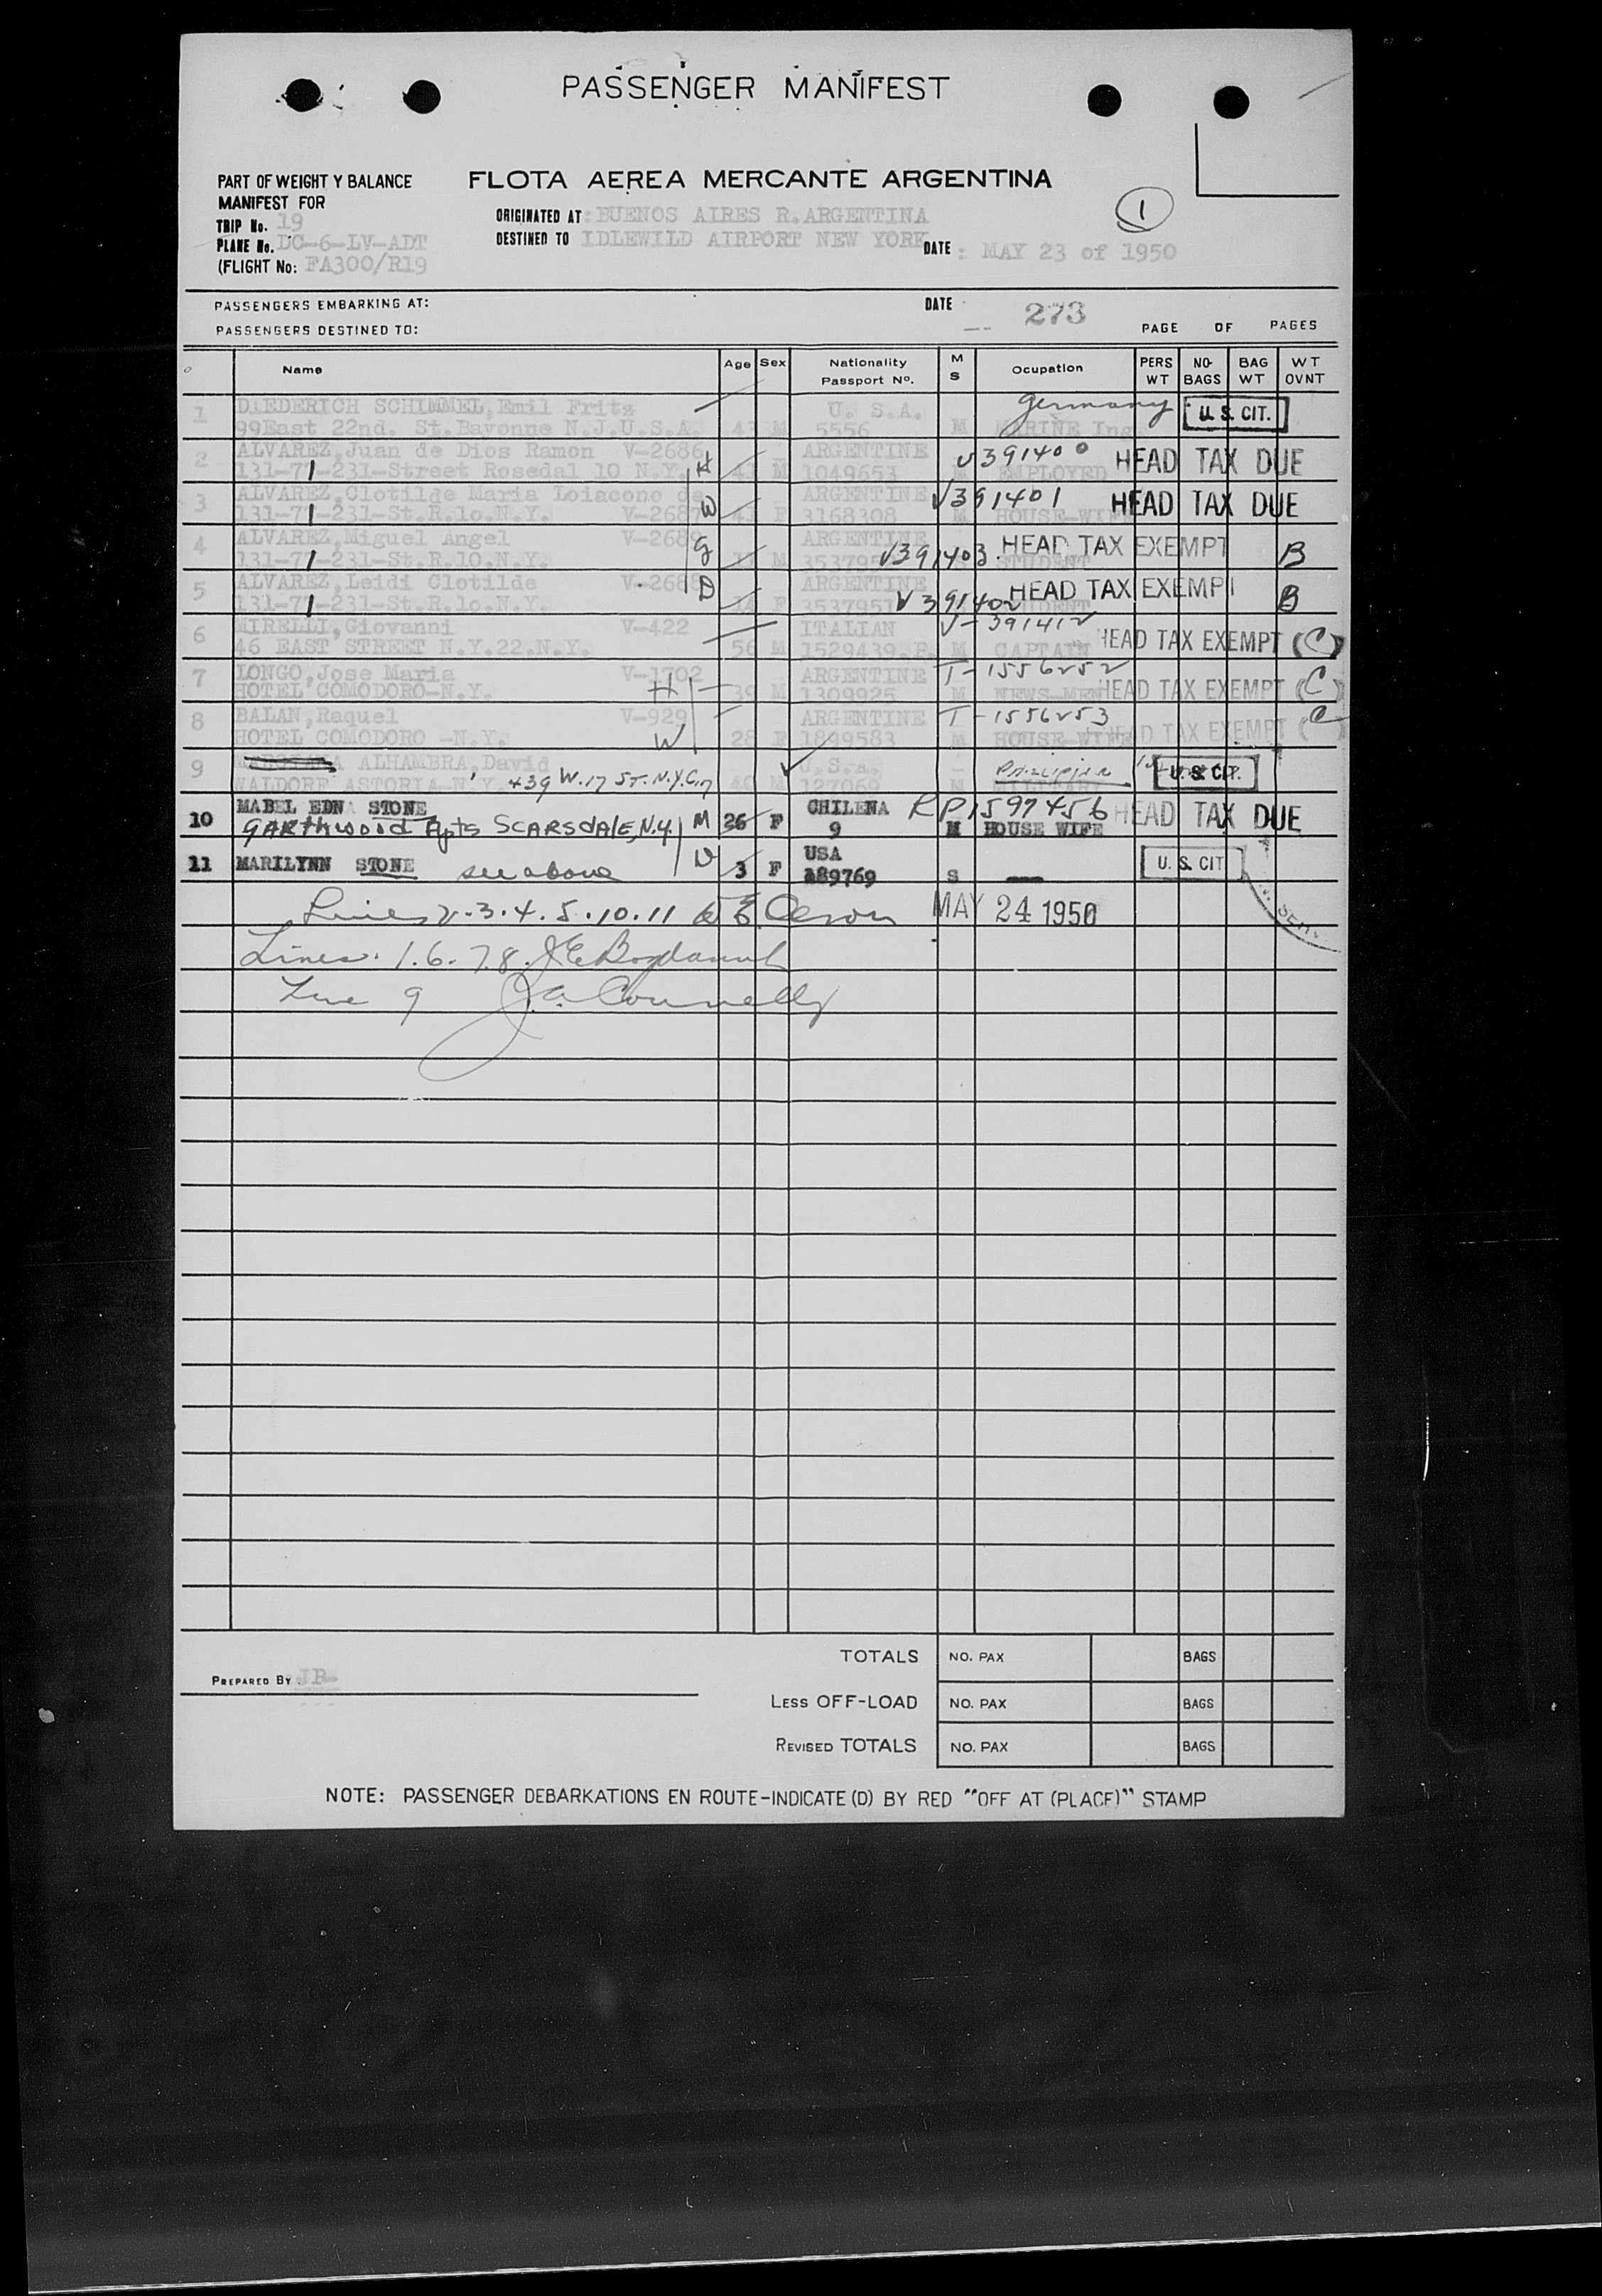 PASSENGER MANIFEST
PART OF WEIGHT Y BALANCE
MANIFEST FOR
FLOTA AEREA MERCANTE ARGENTINA
TRIP No. 19
ORIGINATED AT: BUENOS AIRES R.ARGENTINA
1
PLANE No. DC-6-LV-ADT
DESTINED TO IDLEWILD AIRPORT NEW YORK
DATE: MAY 23 of 1950
(FLIGHT No: FA300/R19
PASSENGERS EMBARKING AT: DATE 273
PASSENGERS DESTINED TO: PAGE OF PAGES
Name Age Sex Nationality Passport No. M S Ocupation PERS WT NO- BAGS BAG WT WT OVNT
1 DIEDERICH SCHIMMEL, Emil Fritz U. S.A. Germany U. S. CIT.
99East 22nd. St.Bavonne N.J.U.S.A. 43 M 5556 M MARINE Ing
2 ALVAREZ, Juan de Dios Ramon V-2686 H ARGENTINE V391400 HEAD TAX DUE
131-71-231-Street Rosedal 10 N.Y. M 1049653 EMPLOYED
3 ALVAREZ, Clotilde Maria Loiacono de ARGENTINE V391401 HEAD TAX DUE
131-71-231-St.R.10.N.Y. V-2687 W 43 F 3168308 M HOUSE-WIFE
4 ALVAREZ, Miguel Angel ARGENTINE V391403 HEAD TAX EXEMPT B
131-71-231-St.R.10.N.Y. M STUDENT
5 ALVAREZ, Leidi Clotilde V-2688 D ARGENTINE V391402 HEAD TAX EXEMPT B
131-71-231-St.R.10.N.Y. F STUDENT
6 MIRELLI, Giovanni V-422 ITALIAN V-391412 HEAD TAX EXEMPT (C)
46 EAST STREET N.Y.22.N.Y. 56 M 1529439.P. M CAPTAIN
7 LONGO, Jose Maria V-1702 ARGENTINE T-1556252 HEAD TAX EXEMPT (C)
HOTEL COMODORO-N.Y. H 39 M 1309925 M NEWS-MEN
8 BALAN, Raquel V-929 ARGENTINE T-1556253 HEAD TAX EXEMPT (C
HOTEL COMODORO -N.Y. W 28 F 1899583 M HOUSE-WIFE
9 ALHAMBRA, David U.S.A. U. S. CIT.
WALDORF ASTORIA-N.Y. 439 W.17 ST. N.Y.C. 40 M 127069 MILITARY
10 MABEL EDNA STONE M 26 F CHILENA RP1597456 HEAD TAX DUE
GARthwood Apts SCARSdAlE, N.Y. 9 M HOUSE WIFE
11 MARILYNN STONE see above D 3 F USA U. S. CIT
189769 S
Lines 2.3.4.5.10.11 MAY 24 1950
Lines. 1.6.7.8.
Line 9 J.A. Connelly
TOTALS NO. PAX BAGS
PREPARED BY JR
LESS OFF-LOAD NO. PAX BAGS
REVISED TOTALS NO. PAX BAGS
NOTE: PASSENGER DEBARKATIONS EN ROUTE-INDICATE (D) BY RED "OFF AT (PLACE)" STAMP